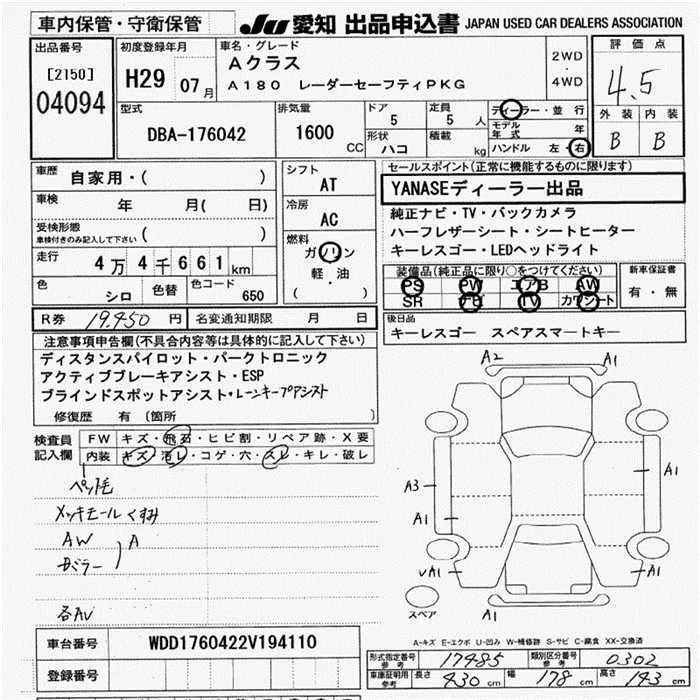 車内保管・守衛保管
JU 愛知 出品申込書 JAPAN USED CAR DEALERS ASSOCIATION
出品番号
[2150]
04094
初度登録年月
H29 07月
車名・グレード
Aクラス
A180 レーダーセーフティPKG
2WD
・
4WD
評価点
4.5
外装 内装
B B
型式
DBA-176042
排気量
1600
CC
ドア
5
定員
5 人
形状
ハコ
積載
kg
ディーラー・並行
モデル年式 年
ハンドル 左・右
車歴
自家用・( )
車検
年 月( 日)
受検形態
車検付きのみ記入して下さい ( )
走行
4万4千661km
色
シロ
色替
色コード
650
シフト
AT
冷房
AC
燃料
ガソリン
軽・油
( )
セールスポイント(正常に機能するものに限ります)
YANASEディーラー出品
純正ナビ・TV・バックカメラ
ハーフレザーシート・シートヒーター
キーレスゴー・LEDヘッドライト
装備品(純正品に限り○をつけてください)
PS PW エアB AW
SR ナビ TV カワシート
新車保証書
有・無
R券 19,450 円 名変通知期限 月 日
後日品
キーレスゴー スペアスマートキー
注意事項申告欄(不具合内容等は具体的に記入して下さい)
ディスタンスパイロット・パークトロニック
アクティブブレーキアシスト・ESP
ブラインドスポットアシスト・レーンキープアシスト
修復歴 有 〔箇所 〕
検査員
記入欄
FW キズ・飛石・ヒビ割・リペア跡・X要
内装 キズ・汚レ・コゲ・穴・スレ・キレ・破レ
ペット毛
メッキモールくすみ
AW
ミラー
A
各AV
A2 A1
A3 A1
A1
vA1 A1
A1
スペア
A-キズ E-エクボ U-凹み W-補修跡 S-サビ C-腐食 XX-交換済
車台番号 WDD1760422V194110
登録番号
形式指定番号
参考
17485
類別区分番号
参考
0302
車庫証明用
参考
長さ 430 cm 幅 178 cm 高さ 143 cm